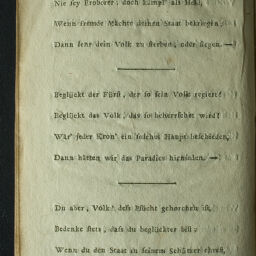 Nie sey Eroberer; doch kämpf' als Held,
Wenn fremde Mächte deinen Staat bekriegen,
Dann lehr dein Volk zu sterben, oder siegen. —
Beglückt der Fürst, der so sein Volk regiert!
Beglückt das Volk, das so beherrschet wird!
Wär' jeder Kron' ein solches Haupt beschieden,
Dann hätten wir das Paradies hienieden. —
Du aber, Volk! dess Pflicht gehorchen ist,
Bedenke stets, dass du beglückter bist:
Wenn du den Staat in seinem Schützer ehrest,